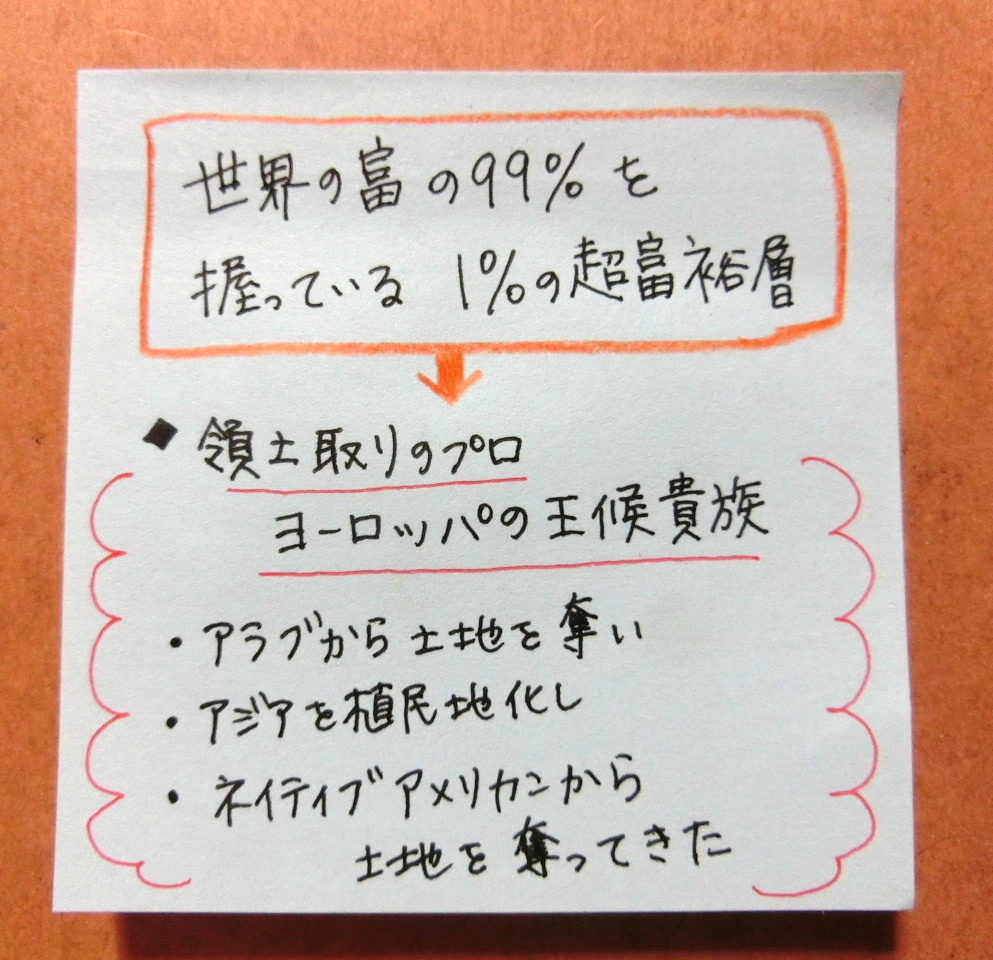 世界の富の99%を
握っている 1%の超富裕層
◆ 領土取りのプロ
ヨーロッパの王候貴族
・アラブから土地を奪い
・アジアを植民地化し
・ネイティブアメリカンから
土地を奪ってきた